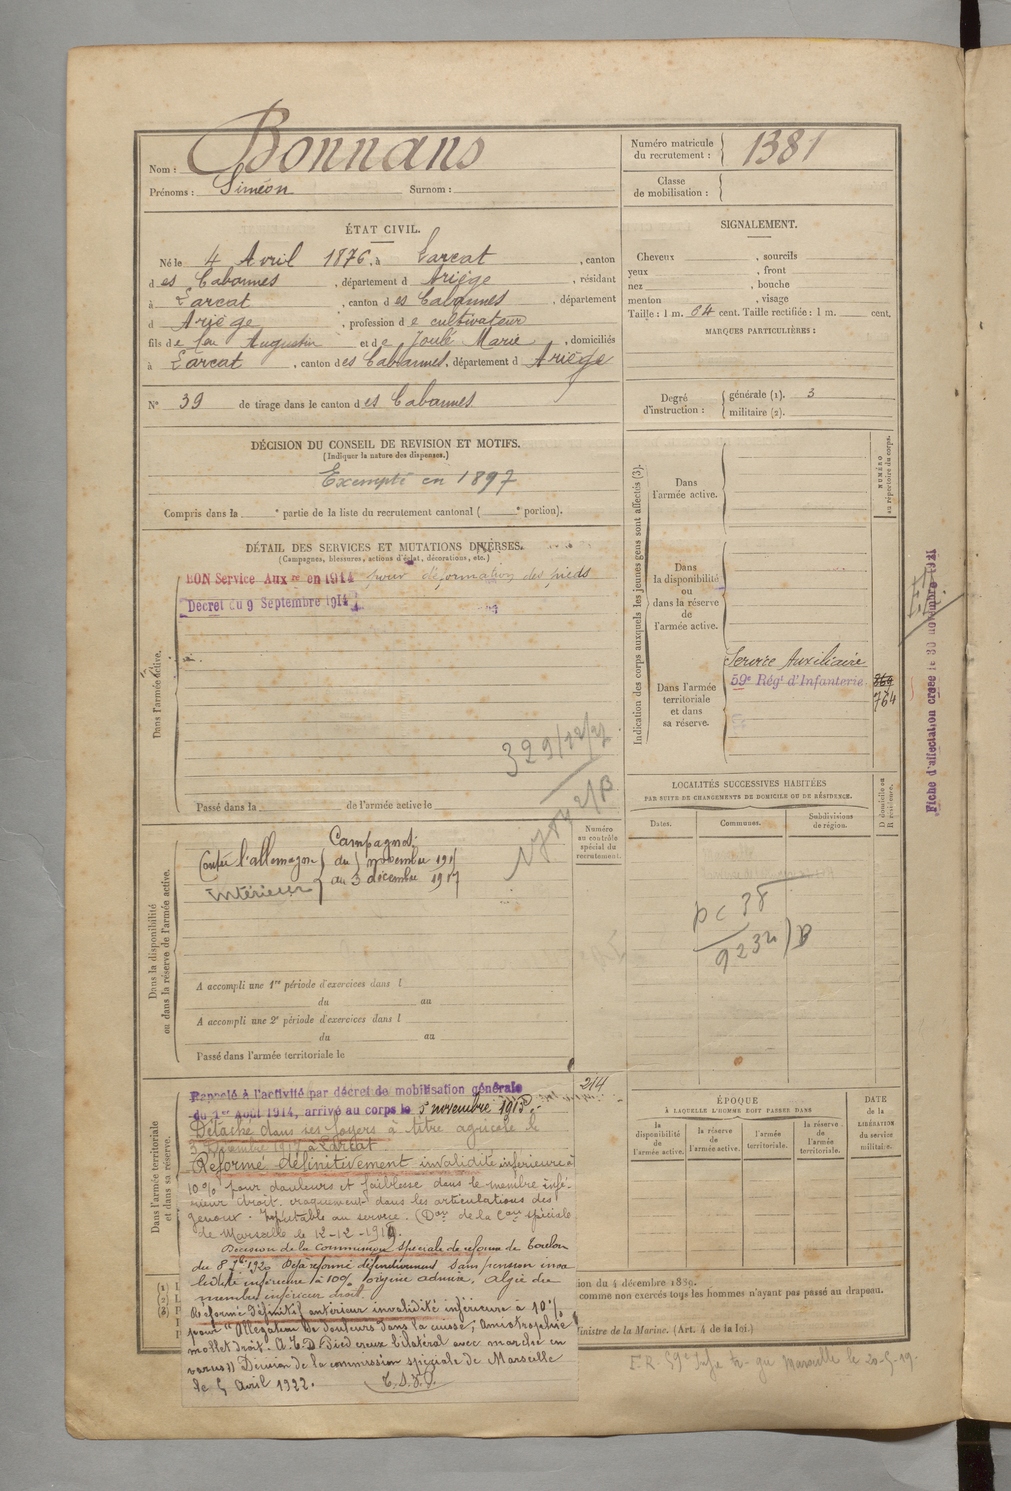 Nom : Bonnans
Prénoms : Siméon Surnom :
Numéro matricule du recrutement : 1381
Classe de mobilisation :
ÉTAT CIVIL.
Né le 4 Avril 1876, à Larcat, canton
des Cabannes, département d Ariège, résidant
à Larcat, canton des Cabannes, département
d Ariège, profession de cultivateur
fils de feu Augustin et de Joulé Marie, domiciliés
à Larcat, canton des Cabannes, département d Ariège
N° 39 de tirage dans le canton des Cabannes
SIGNALEMENT.
Cheveux , sourcils
yeux , front
nez , bouche
menton , visage
Taille : 1 m. 64 cent. Taille rectifiée : 1 m. cent.
MARQUES PARTICULIÈRES :
Degré d'instruction : générale (1). 3
militaire (2).
DÉCISION DU CONSEIL DE REVISION ET MOTIFS.
(Indiquer la nature des dispenses.)
Exempté en 1897
Compris dans la e partie de la liste du recrutement cantonal ( e portion).
DÉTAIL DES SERVICES ET MUTATIONS DIVERSES.
(Campagnes, blessures, actions d'éclat, décorations, etc.)
BON Service Auxre en 1914 pour déformation des pieds
Décret du 9 Septembre 1914
Dans l'armée active.
329/12/
Passé dans la de l'armée active le
Indication des corps auxquels les jeunes gens sont affectés (3).
NUMÉRO au répertoire du corps.
Dans l'armée active.
Dans la disponibilité ou dans la réserve de l'armée active.
Dans l'armée territoriale et dans sa réserve.
Service Auxiliaire
59e Régt d'Infanterie
764
Fiche d'affectation créée le 30 novembre 1921
LOCALITÉS SUCCESSIVES HABITÉES
PAR SUITE DE CHANGEMENTS DE DOMICILE OU DE RÉSIDENCE.
D domicile ou R résidence.
Dates. Communes. Subdivisions de région.
pc 38
Numéro au contrôle spécial du recrutement.
Dans la disponibilité ou dans la réserve de l'armée active.
Campagnes.
Contre l'allemagne du 5 novembre 191
Intérieur au 3 décembre 1917
A accompli une 1re période d'exercices dans l
du au
A accompli une 2e période d'exercices dans l
du au
Passé dans l'armée territoriale le
214
Dans l'armée territoriale et dans sa réserve.
Rappelé à l'activité par décret de mobilisation générale
du 1er août 1914, arrivé au corps le 5 novembre 1915.
Détaché dans ses foyers à titre agricole le
3 Décembre 1917 à Larcat
Réformé définitivement invalidité inférieure à
10% pour douleurs et faiblesse dans le membre infé-
rieur droit, craquement dans les articulations des
genoux. Imputable au service. (Don de la Con spéciale
de Marseille le 12-12-1919.
Décision de la Commission spéciale de réforme de Toulon
du 8 7bre 1920 Déjà réformé définitivement sans pension inva
lidité inférieure à 10% origine admise, Algie du
membre inférieur droit.
Réformé Définitif antérieur invalidité inférieure à 10%
pour "Allégation de douleurs dans la cuisse, Amyotrophie
mollet droit. A.T.D. Pied creux bilatéral avec marche en
varus)) Décision de la commission spéciale de Marseille
le 5 Avril 1922.
ÉPOQUE
À LAQUELLE L'HOMME DOIT PASSER DANS
la disponibilité de l'armée active.
la réserve de l'armée active.
l'armée territoriale.
la réserve de l'armée territoriale.
DATE de la LIBÉRATION du service militaire.
(1)
(2)
(3)
ion du 4 décembre 1889.
comme non exercés tous les hommes n'ayant pas passé au drapeau.
inistre de la Marine. (Art. 4 de la loi.)